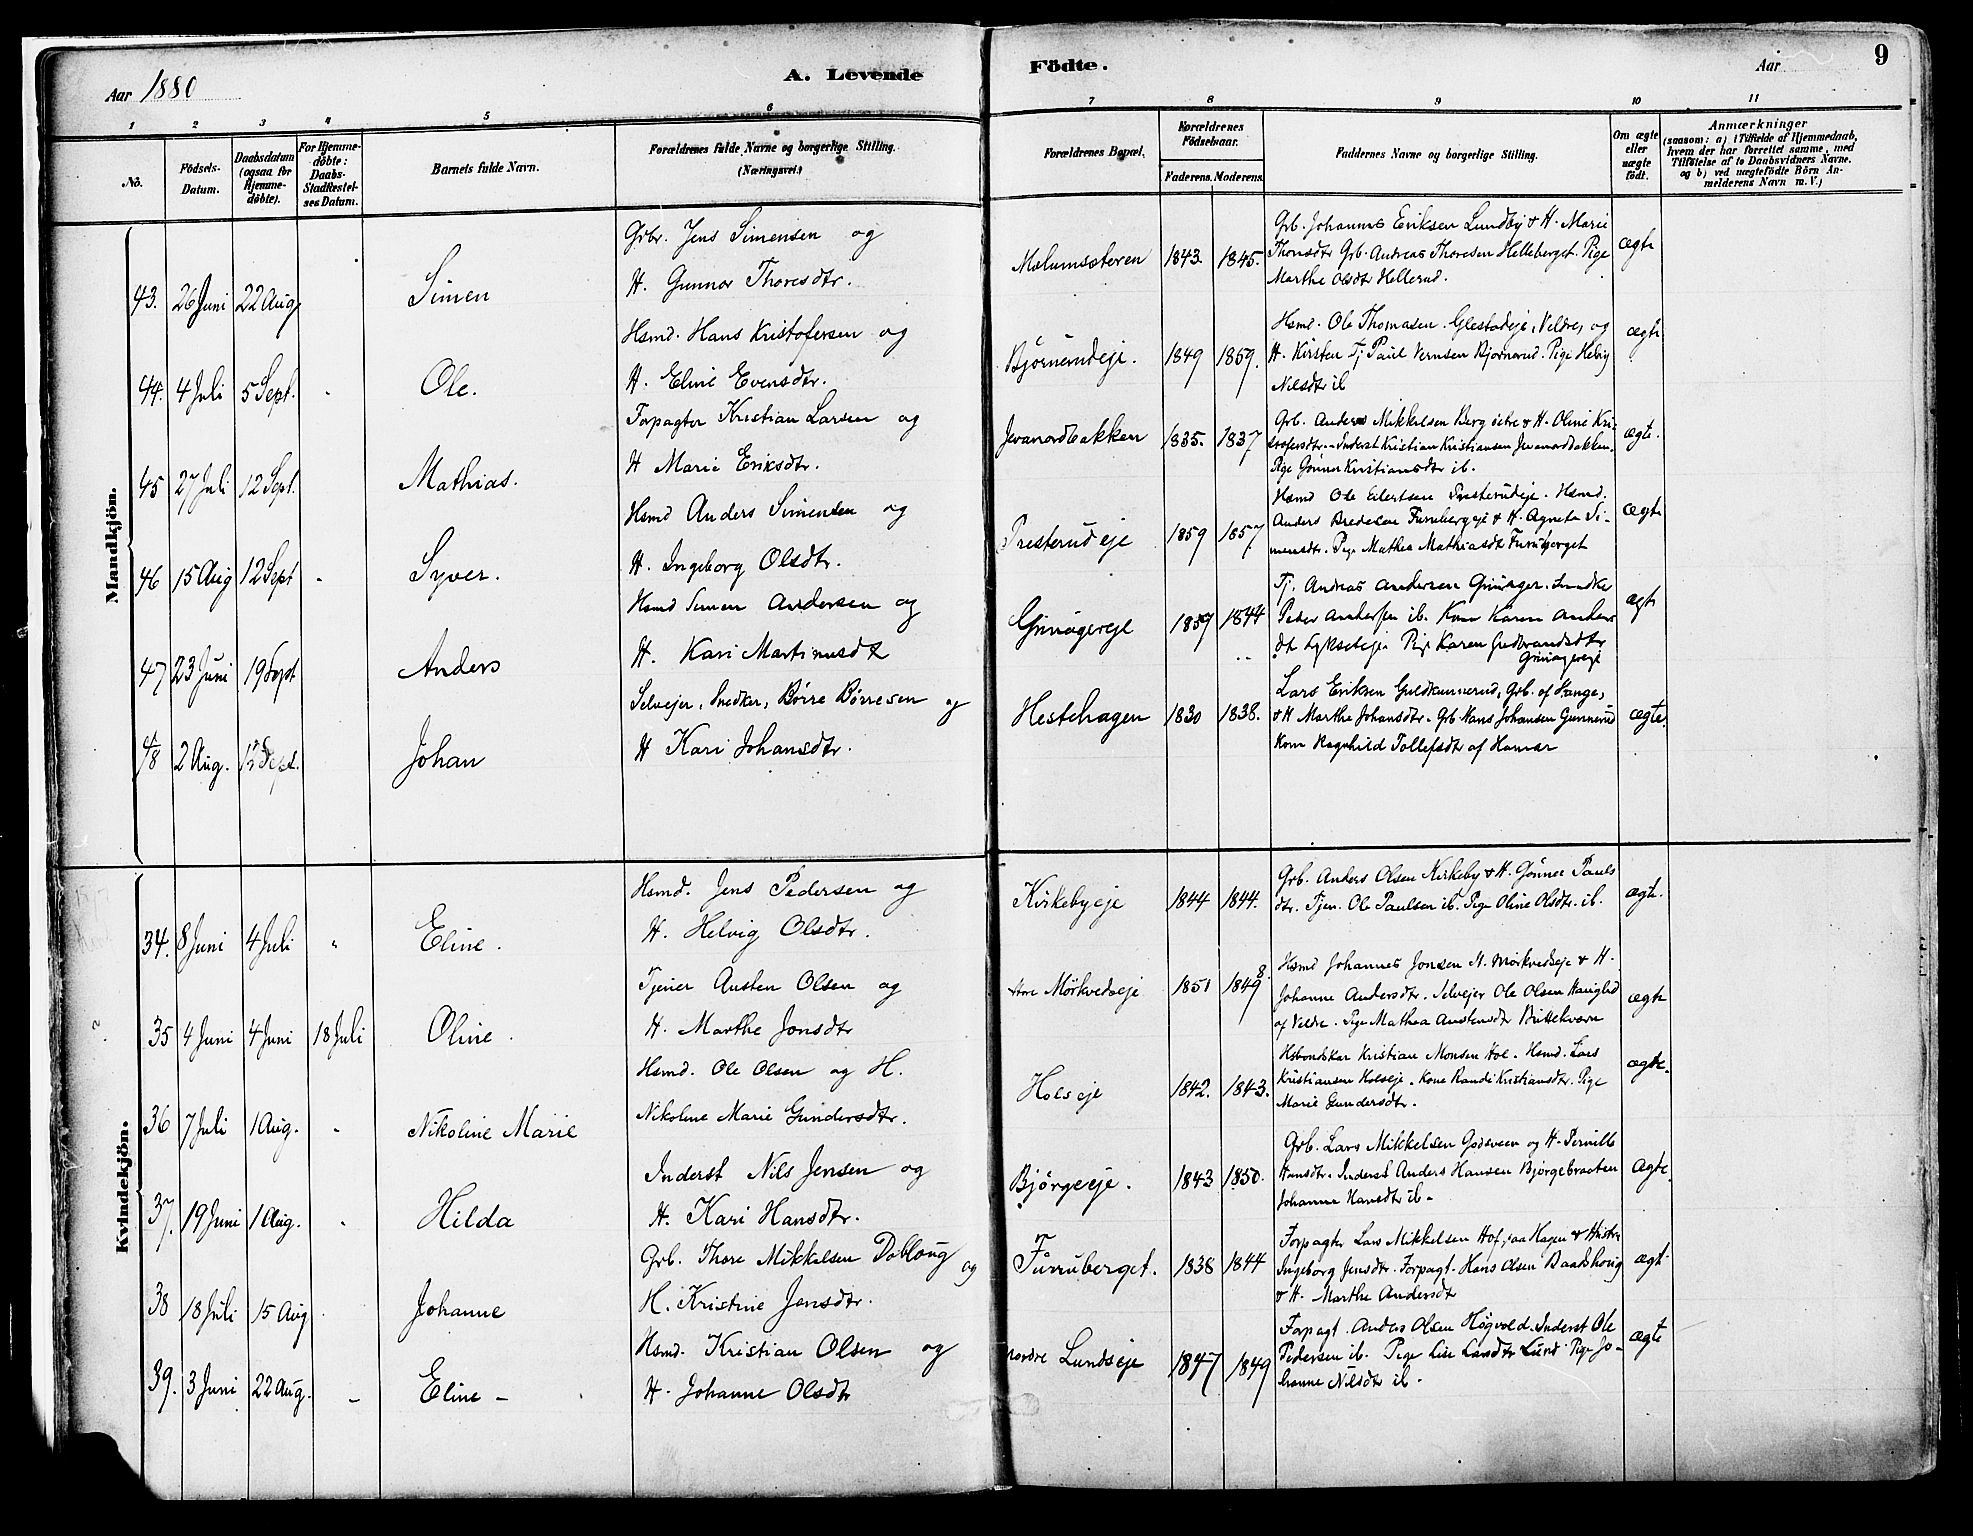 Aar 1880
A. Levende
Födte.
Aar
9
1 2 3 4 5 6 7 8 9 10 11
No.
Födsels-
Datum.
Daabsdatum
(ogsaa for
Hjemme-
döbte).
For Hjemme-
döbte:
Daabs-
Stadfæstel-
ses Datum.
Barnets fulde Navn.
Forældrenes fulde Navne og borgerlige Stilling.
(Næringsvei.)
Forældrenes Bopæl.
Forældrenes
Födselsaar.
Faderens. Moderens.
Faddernes Navne og borgerlige Stilling.
Om ægte
eller
uægte
födt.
Anmærkninger
(saasom: a) i Tilfælde af Hjemmedaab,
hvem der har forrettet samme, med
Tilföielse af to Daabsvidners Navne.
og b) ved uægtefödte Börn An-
melderens Navn m. V.)
Mandkjön.
43. 26 Juni 22 Aug Simen
Grbr. Jens Simensen og
H. Gunnor Thoresdtr.
1843. 1845.
Grb. Johannes Eriksen Lundby & H. Marie
Thorsdtr Grb. Andreas Thoresen Helleberget. Pige
Marthe Olsdtr Hellerud.
ægte
44. 4 Juli 5 Sept. Ole.
Hsmd. Hans Kristofersen og
H. Eline Evensdtr.
Bjørnerudeje. 1849 1859.
Hsmd. Ole Thomasen. Glestadeje, Veldre, og
H. Kirsten Tj Paul Bjørnerud. Pige Helvig
Nilsdtr ib
ægte
45 27 Juli 12 Sept. Mathias.
Forpagter Kristian Larsen og
H Marie Eriksdtr.
Jevanordbakken 1835. 1837
Grb. Anders Mikkelsen Berg østre & H. Oline Kri-
stofersdtr. Inderst Kristian Kristiansen Jevanordbakken.
Pige Gønner Kristiansdtr ib.
ægte.
46 15 Aug 12 Sept " Syver.
Hsmd Anders Simensen og
H. Ingeborg Olsdtr.
Presterudeje 1859 1857
Hsmd Ole Eilertsen Presterudeje. Hsmd.
Anders Bredesen Furubergeje & H. Agnete Si-
mensdtr. Pige Mathea Mathiasdt Furuberget
ægte
47 23 Juni 19 Sept Anders
Hsmd Simen Andersen og
H. Kari Martinusdt
1859 1844
Tj. Andreas Andersen
Peder Andersen ib. Kone Karen Anders
dt Pige Karen Gudbrandsdtr
ægte
48 2 Aug. 12 Sept. Johan
Selvejer, Snedker, Børre Børresen og
H Kari Johansdtr.
Hestehagen 1830 1838.
Lars Eriksen Guldkunnerud, Grb. af Vang,
& H Marthe Johansdtr. Grb Hans Johansen Gunnerud
Kone Ragnhild Tollefsdtr af Hamar
ægte.
Kvindekjön.
34. 8 Juni 4 Juli " Eline.
Hsmd. Jens Pedersen og
H. Helvig Olsdtr.
Kirkebyeje 1844 1844.
Grb. Anders Olsen Kirkeby & H. Gønner Pauls
dtr. Tjen. Ole Paulsen ib. Pige Oline Olsdtr. ib.
ægte.
35 4 Juni 4 Juni 18 Juli Oline.
Tjener Austen Olsen og
H. Marthe Jonsdtr
Mørkvedseje 1851 1849
Hsmd Johannes Jonsen N. Mørkvedseje & H.
Johanne Andersdtr. Selvejer Ole Olsen Hauglid
af Veldre. Pige Mathea Austensdtr
ægte
36 7 Juli 1 Aug. " Nikoline Marie
Hsmd. Ole Olsen og H.
Nikoline Marie Gundersdtr.
Holseje 1842. 1843.
Kristian Monsen Hol. Hsmd. Lars
Kristiansen Holseje. Kone Randi Kristiansdtr. Pige
Marie Gundersdtr.
ægte.
37. 19 Juni 1 Aug. " Hilda
Inderst Nils Jensen og
H. Kari Hansdtr.
Bjørgeeje. 1843 1850.
Grb. Lars Mikkelsen Godsveen og H. Pernille
Hansdtr. Inderst Anders Hansen Bjørgebraaten
Johanne Hansdtr ib.
ægte.
38 18 Juli 15 Aug Johanne
Grb. Thore Mikkelsen Dobloug og
H. Kristine Jensdtr.
Furuberget. 1838 1844
Forpagter Lars Mikkelsen Hof, paa Hagen & Hustru
Ingeborg Jensdtr. Forpagt. Hans Olsen Baadshoug
& H. Marthe Andersdt
ægt
39. 3 Juni 22 Aug. " Eline
Hsmd. Kristian Olsen og
H. Johanne Olsdtr
nordre Lundseje 1847 1849
Forpagt. Anders Olsen Høgvold. Inderst Ole
Pedersen ib. Pige Lise Larsdtr Lund. Pige Jo-
hanne Nilsdtr ib.
ægte